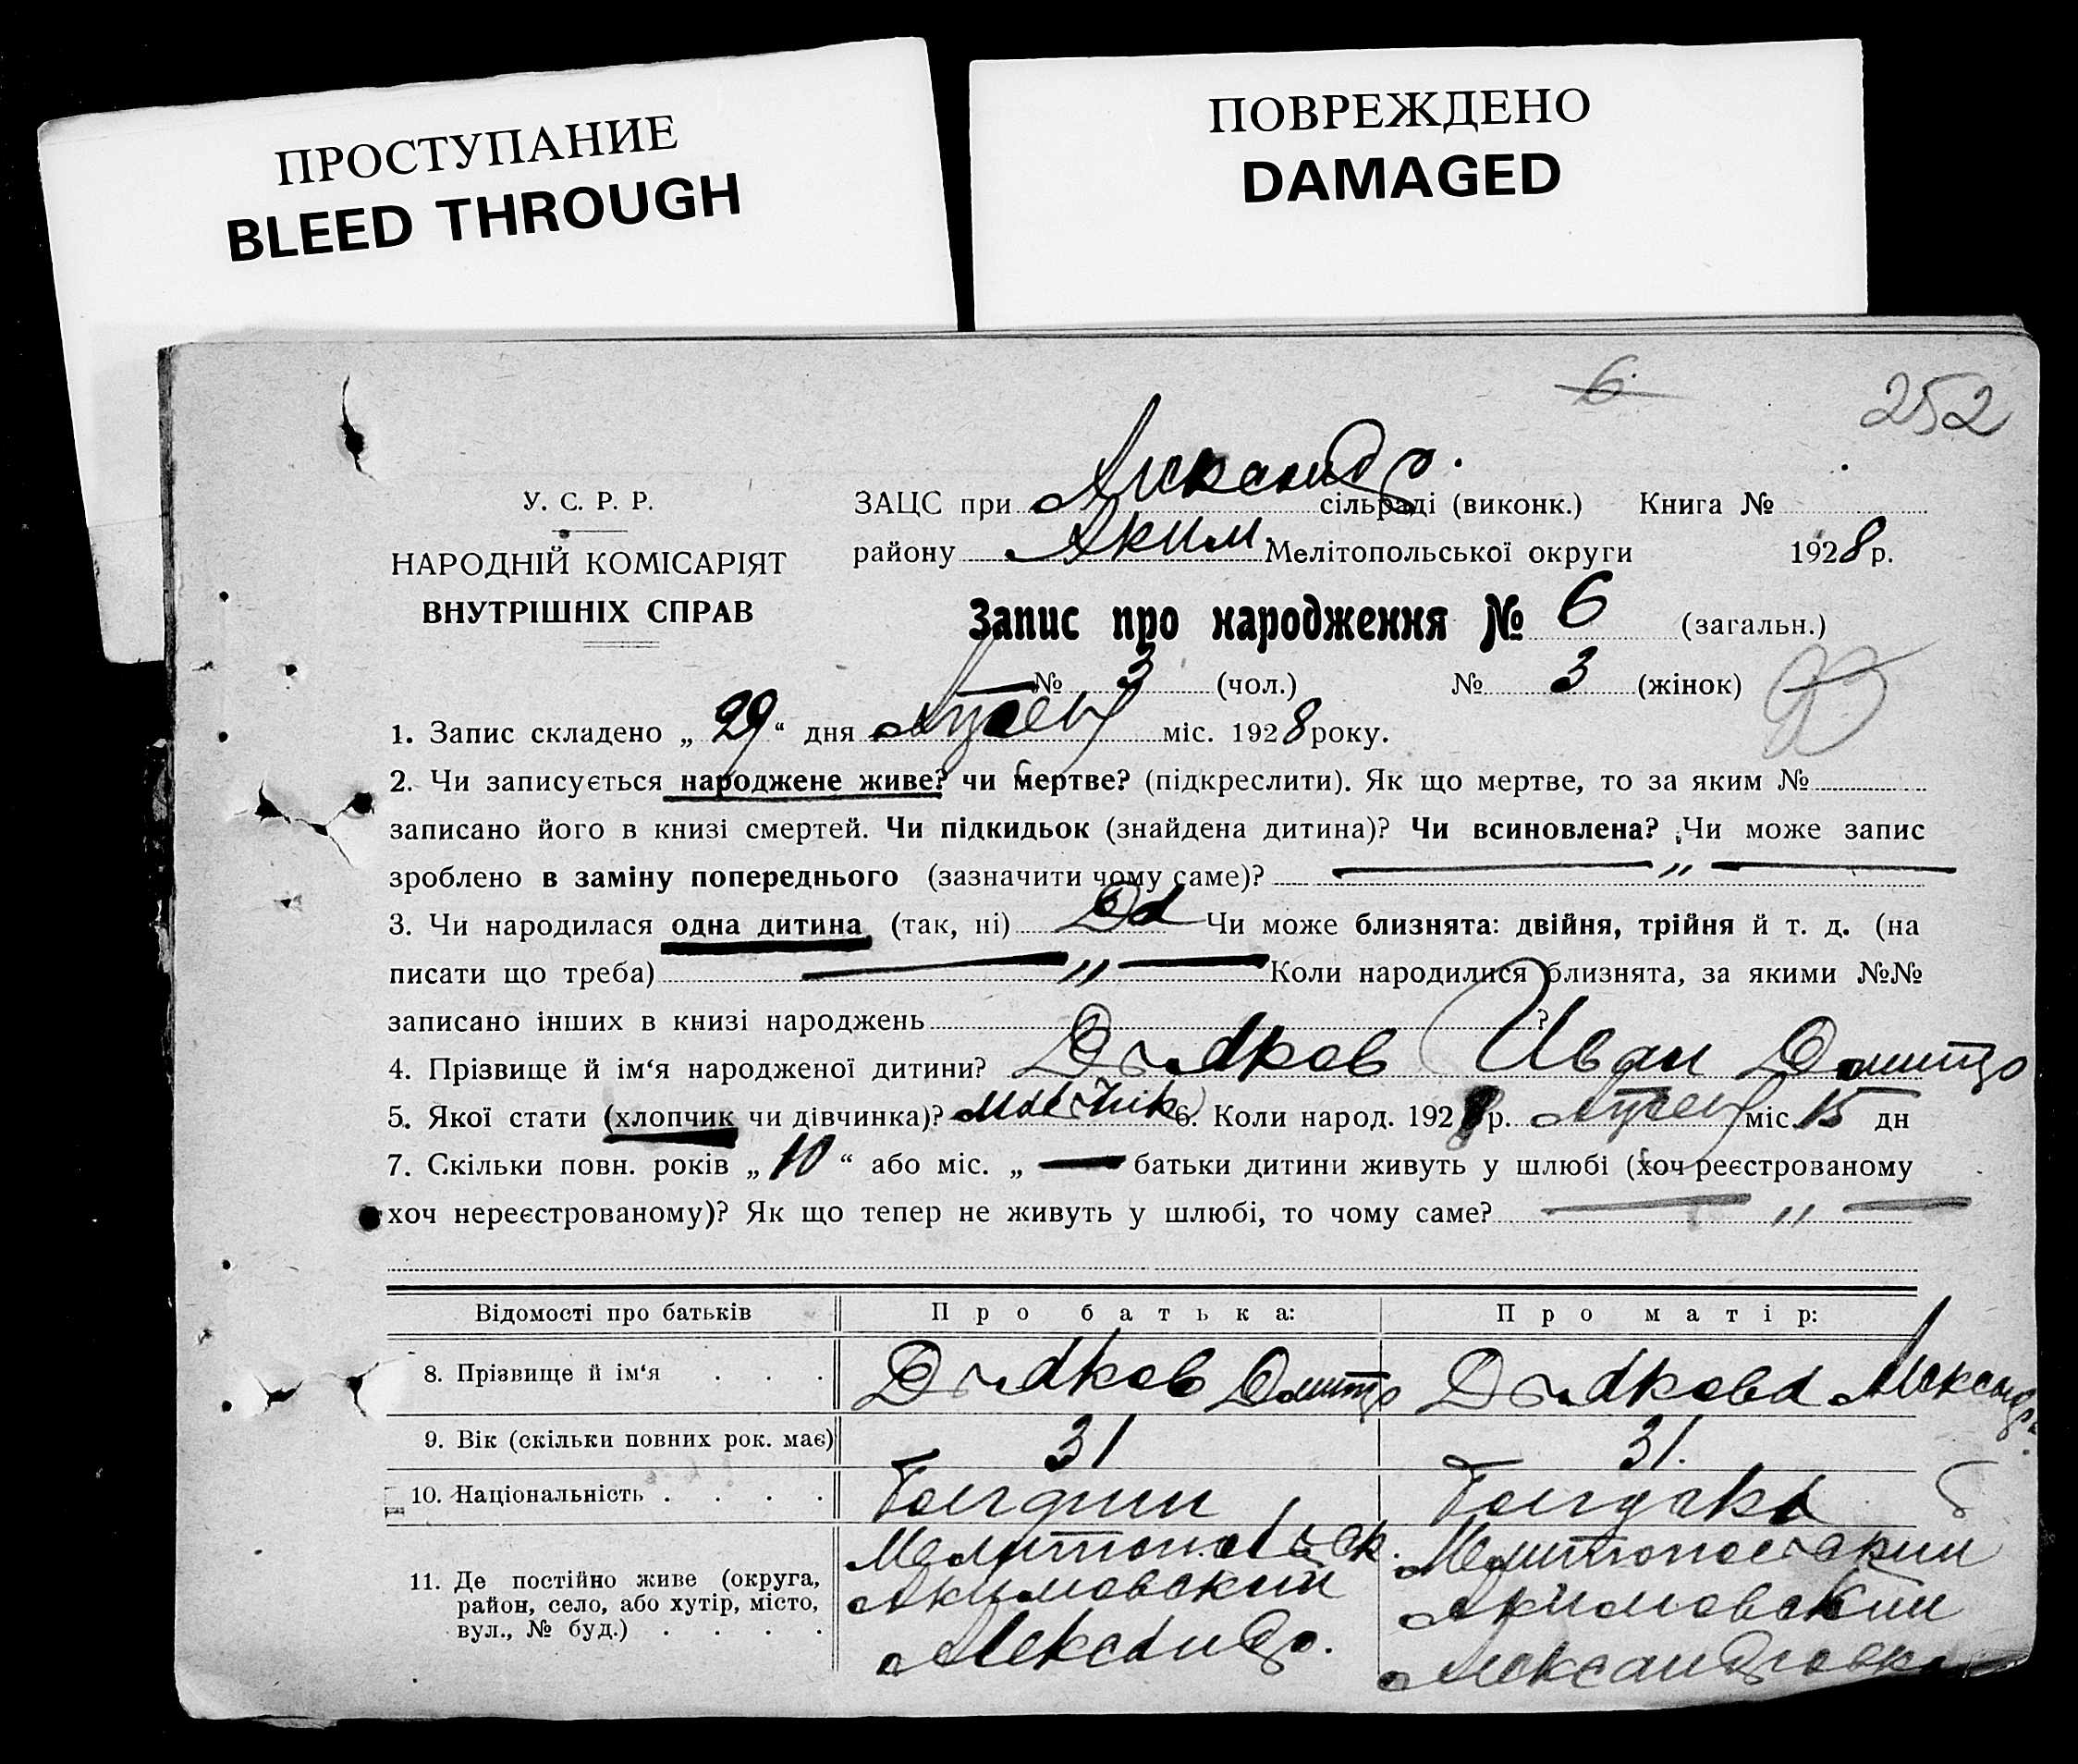 ПРОСТУПАНИЕ
BLEED THROUGH
ПОВРЕЖДЕНО
DAMAGED
6
252
У. С. Р. Р.
НАРОДНІЙ КОМІСАРІЯТ
ВНУТРІШНІХ СПРАВ
ЗАЦС при Александр. сільраді (виконк.) Книга №
району Аким. Мелітопольської округи 1928 р.
Запис про народження № 6 (загальн.)
№ 3 (чол.) № 3 (жінок)
1. Запис складено „ 29 “ дня міс. 1928 року.
2. Чи записується народжене живе? чи мертве? (підкреслити). Як що мертве, то за яким №
записано його в книзі смертей. Чи підкидьок (знайдена дитина)? Чи всиновлена? Чи може запис
зроблено в заміну попереднього (зазначити чому саме)? — „ —
3. Чи народилася одна дитина (так, ні) Чи може близнята: двійня, трійня й т. д. (на
писати що треба) — „ — Коли народилися близнята, за якими №№
записано інших в книзі народжень ?
4. Прізвище й ім‘я народженої дитини? Дьяков Иван Дмитр
5. Якої стати (хлопчик чи дівчинка)? 6. Коли народ. 1928 р. міс. 15 дн
7. Скільки повн. років „ 10 “ або міс. „ — батьки дитини живуть у шлюбі (хоч реєстрованому
хоч нереєстрованому)? Як що тепер не живуть у шлюбі, то чому саме? — „ —
Відомості про батьків Про батька: Про матір:
8. Прізвище й ім‘я . . . Дьяков Дмитр Дьякова Александра
9. Вік (скільки повних рок. має) 31 31.
10. Національність . . . . Болгарин Болгарка
11. Де постійно живе (округа, район, село, або хутір, місто, вул., № буд.) . . . .
Мелитопольск. Мелитопольский
Акимовский Акимовский
Александр. Александровка